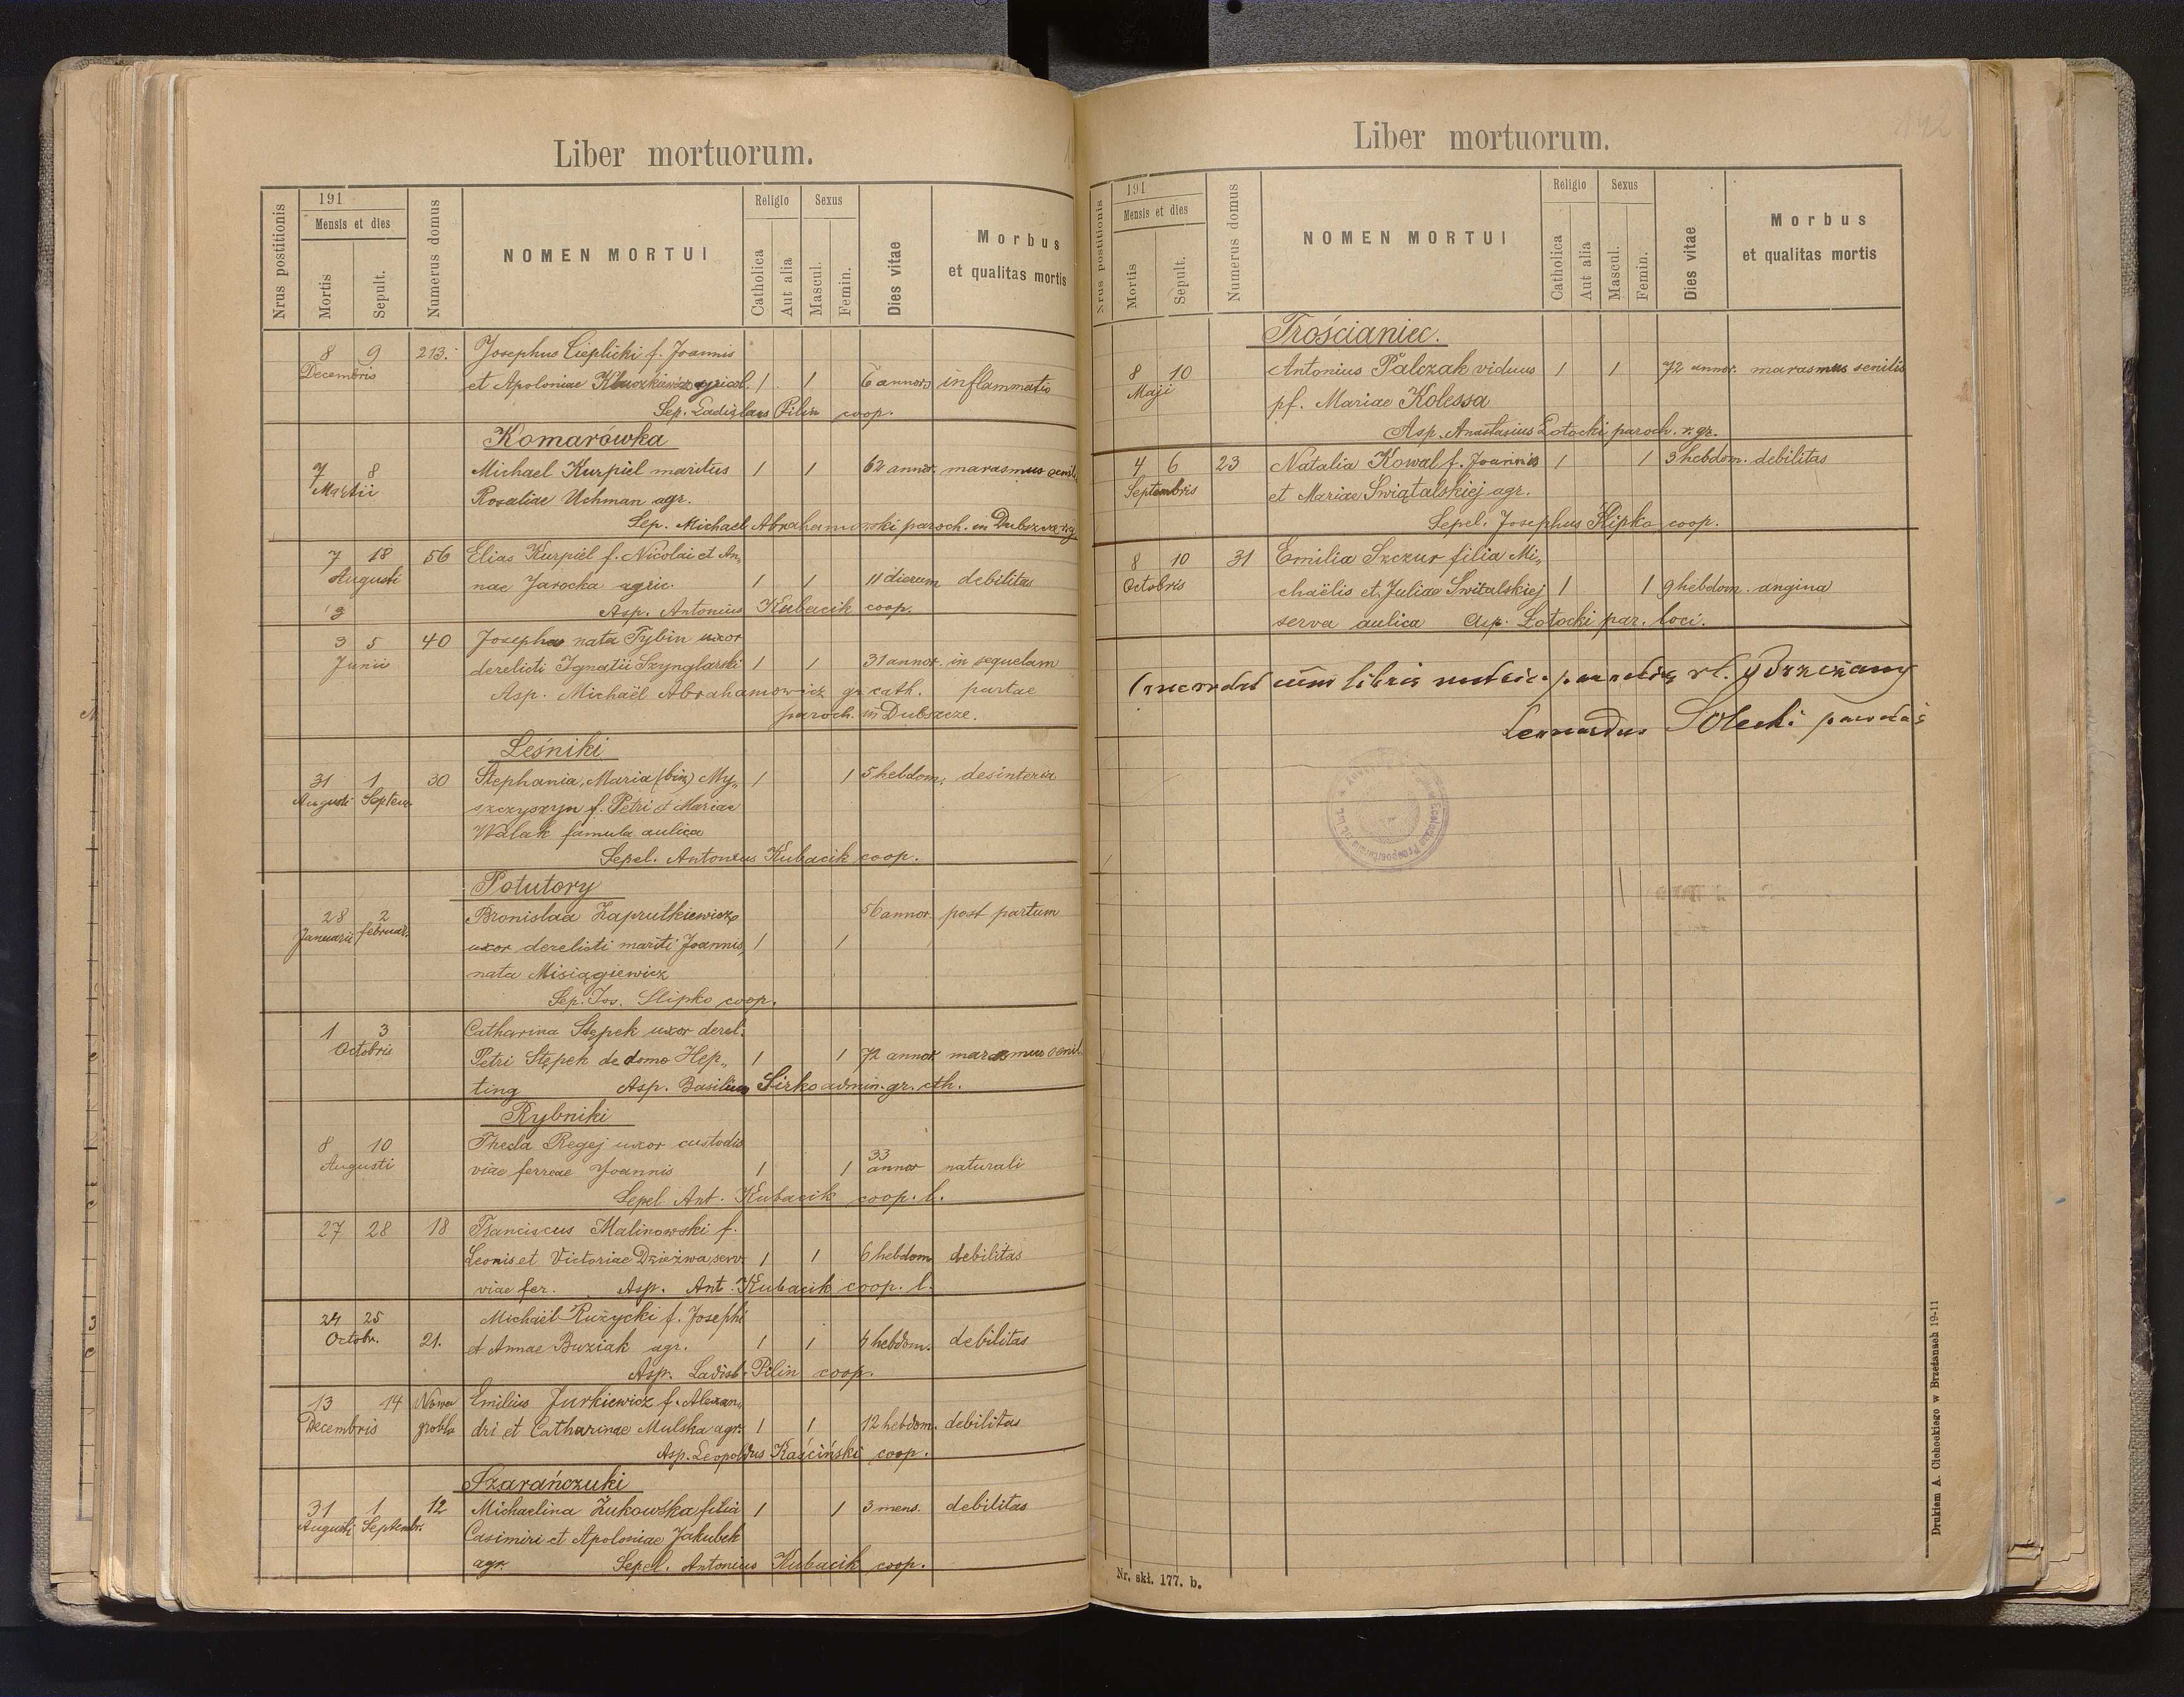 Liber mortuorum.
Nrus postitionis
191
Mensis et dies
Mortis
Sepult.
Numerus domus
NOMEN MORTUI
Religio
Catholica
Aut alia
Sexus
Mascul.
Femin.
Dies vitae
Morbus
et qualitas mortis
8 9 213. Josephus Cieplicki f. Joannis
Decembris et Apoloniae agricol. 1 1 6 annors inflammatio
Sep. Ladislaus Pilin coop.
Komarówka
7 8 Michael Kurpiel maritus 1 1 62 annor. marasmus senil.
Martii Rosaliae Uchman agr.
Sep. Michael Abrahamowski paroch. in
7 18 56 Elias Kurpiel f. Nicolai et An„
Augusti nae Jarocka agric. 1 1 11 dierum debilitas
3 Asp. Antonius Kubacik coop.
3 5 40 Josepha nata Tybin uxor
Junii derelicti Ignatii Szynglarski 1 1 31 annor. in sequelam
Asp. Michaël Abrahamowicz gr. cath. partae
paroch. in Dubszcze.
Leśniki
31 1 30 Stephania, Maria (bin) My„ 1 1 5 hebdom. desinteria
Augusti Septem. szczyszyn f. Petri et Mariae
Walak famula aulica
Sepel. Antonius Kubacik coop.
Potutory
28 2 Bronislaa Zaprutkiewicz 56 annor. post partum
Januarii februar. uxor derelicti mariti Joannis, 1 1
nata Misiągiewicz
Sep. Jos. Slipko coop.
1 3 Catharina Stępek uxor derel.
Octobris Petri Stępek de domo Hep„ 1 1 72 annor marasmus senil.
ting Asp. Basilius Sirko admin. gr. cth.
Rybniki
8 10 Thecla Regej uxor custodis
Augusti viae ferreae Joannis 1 1 33 annor naturali
Sepel. Ant. Kubacik coop. l.
27 28 18 Franciscus Malinowski f.
Leonis et Victoriae Dzieżwa, serv. 1 1 6 hebdom debilitas
viae fer. Asp. Ant. Kubacik coop. l.
24 25 Michaël Rużycki f. Josephi
Octobr. 21. et Annae Buziak agr. 1 1 4 hebdom. debilitas
Asp. Ladisl. Pilin coop.
13 14 Nowa Emilius Jurkiewicz f. Alexan„
Decembris grobla dri et Catharinae Mulska agr. 1 1 12 hebdom. debilitas
Asp. Leopoldus Kaściński coop.
Szarańczuki
31 1 12 Michaelina Żukowska, filia 1 1 3 mens. debilitas
Augusti Septembr. Casimiri et Apoloniae Jakubek
agr. Sepel. Antonius Kubacik coop.
142
Liber mortuorum.
Nrus postitionis
191
Mensis et dies
Mortis
Sepult.
Numerus domus
NOMEN MORTUI
Religio
Catholica
Aut alia
Sexus
Mascul.
Femin.
Dies vitae
Morbus
et qualitas mortis
Trościaniec.
8 10 Antonius Palczak viduus 1 1 72 annor. marasmus senilis
Maji pf. Mariae Kolessa
Asp. Anastasius Łotocki paroch. r. gr.
4 6 23 Natalia Kowal f. Joannis 1 1 3 hebdom. debilitas
Septembris et Mariae Swiątalskiej agr.
Sepel. Josephus Slipko coop.
8 10 31 Emilia Szczur filia Mi„
Octobris chaëlis et Juliae Switalskiej 1 1 9 hebdom. angina
serva aulica Asp. Łotocki par. loci.
Concordat cum libris rl.
Leonardus Solecki parochus
Nr. skł. 177. b.
Drukiem A. Cichockiego w Brzeżanach 19-11